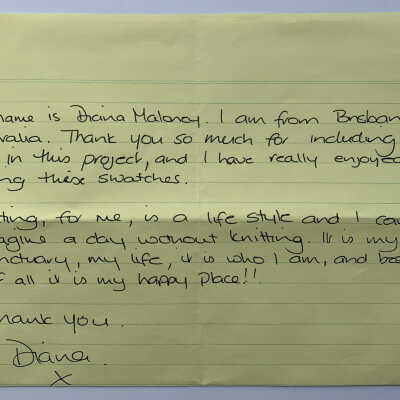 name is Diana Maloney. I am from Brisban
ralia. Thank you so much for including
in this project, and I have really enjoyed
ng these swatches.
ting, for me, is a life style and I can
agine a day without knitting. It is my
nctuary, my life, it is who I am, and bes
f all it is my happy place!!
hank you.
Diana
x